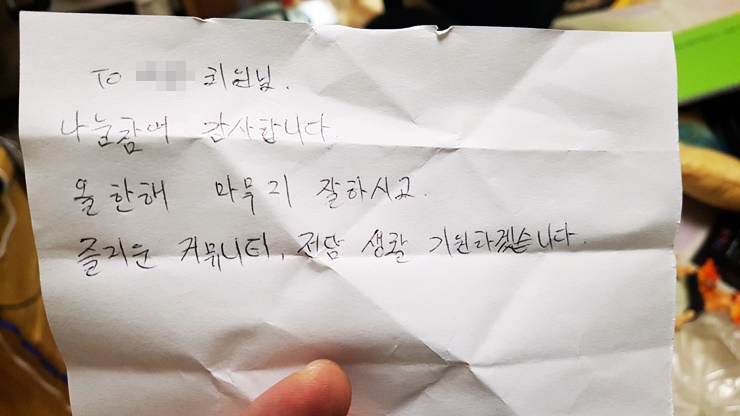 TO 회원님.
나눔참여 감사합니다.
올 한해 마무리 잘하시고.
즐거운 커뮤니티, 전담 생활 기원하겠습니다.